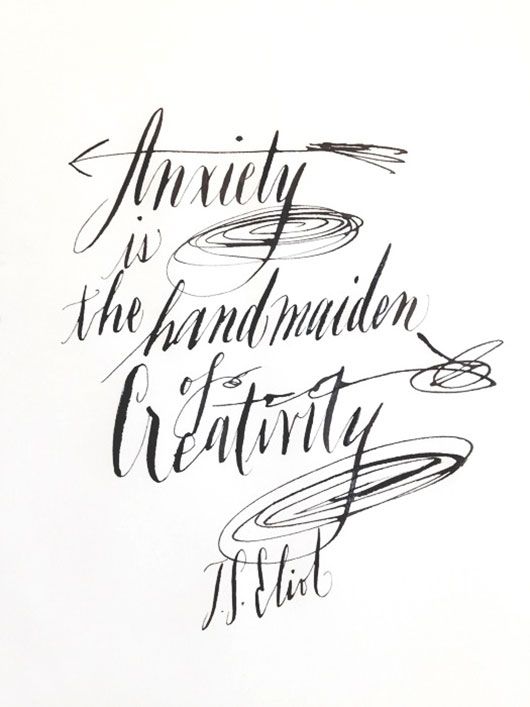 Anxiety
is
the handmaiden
of
Creativity
T.S. Eliot